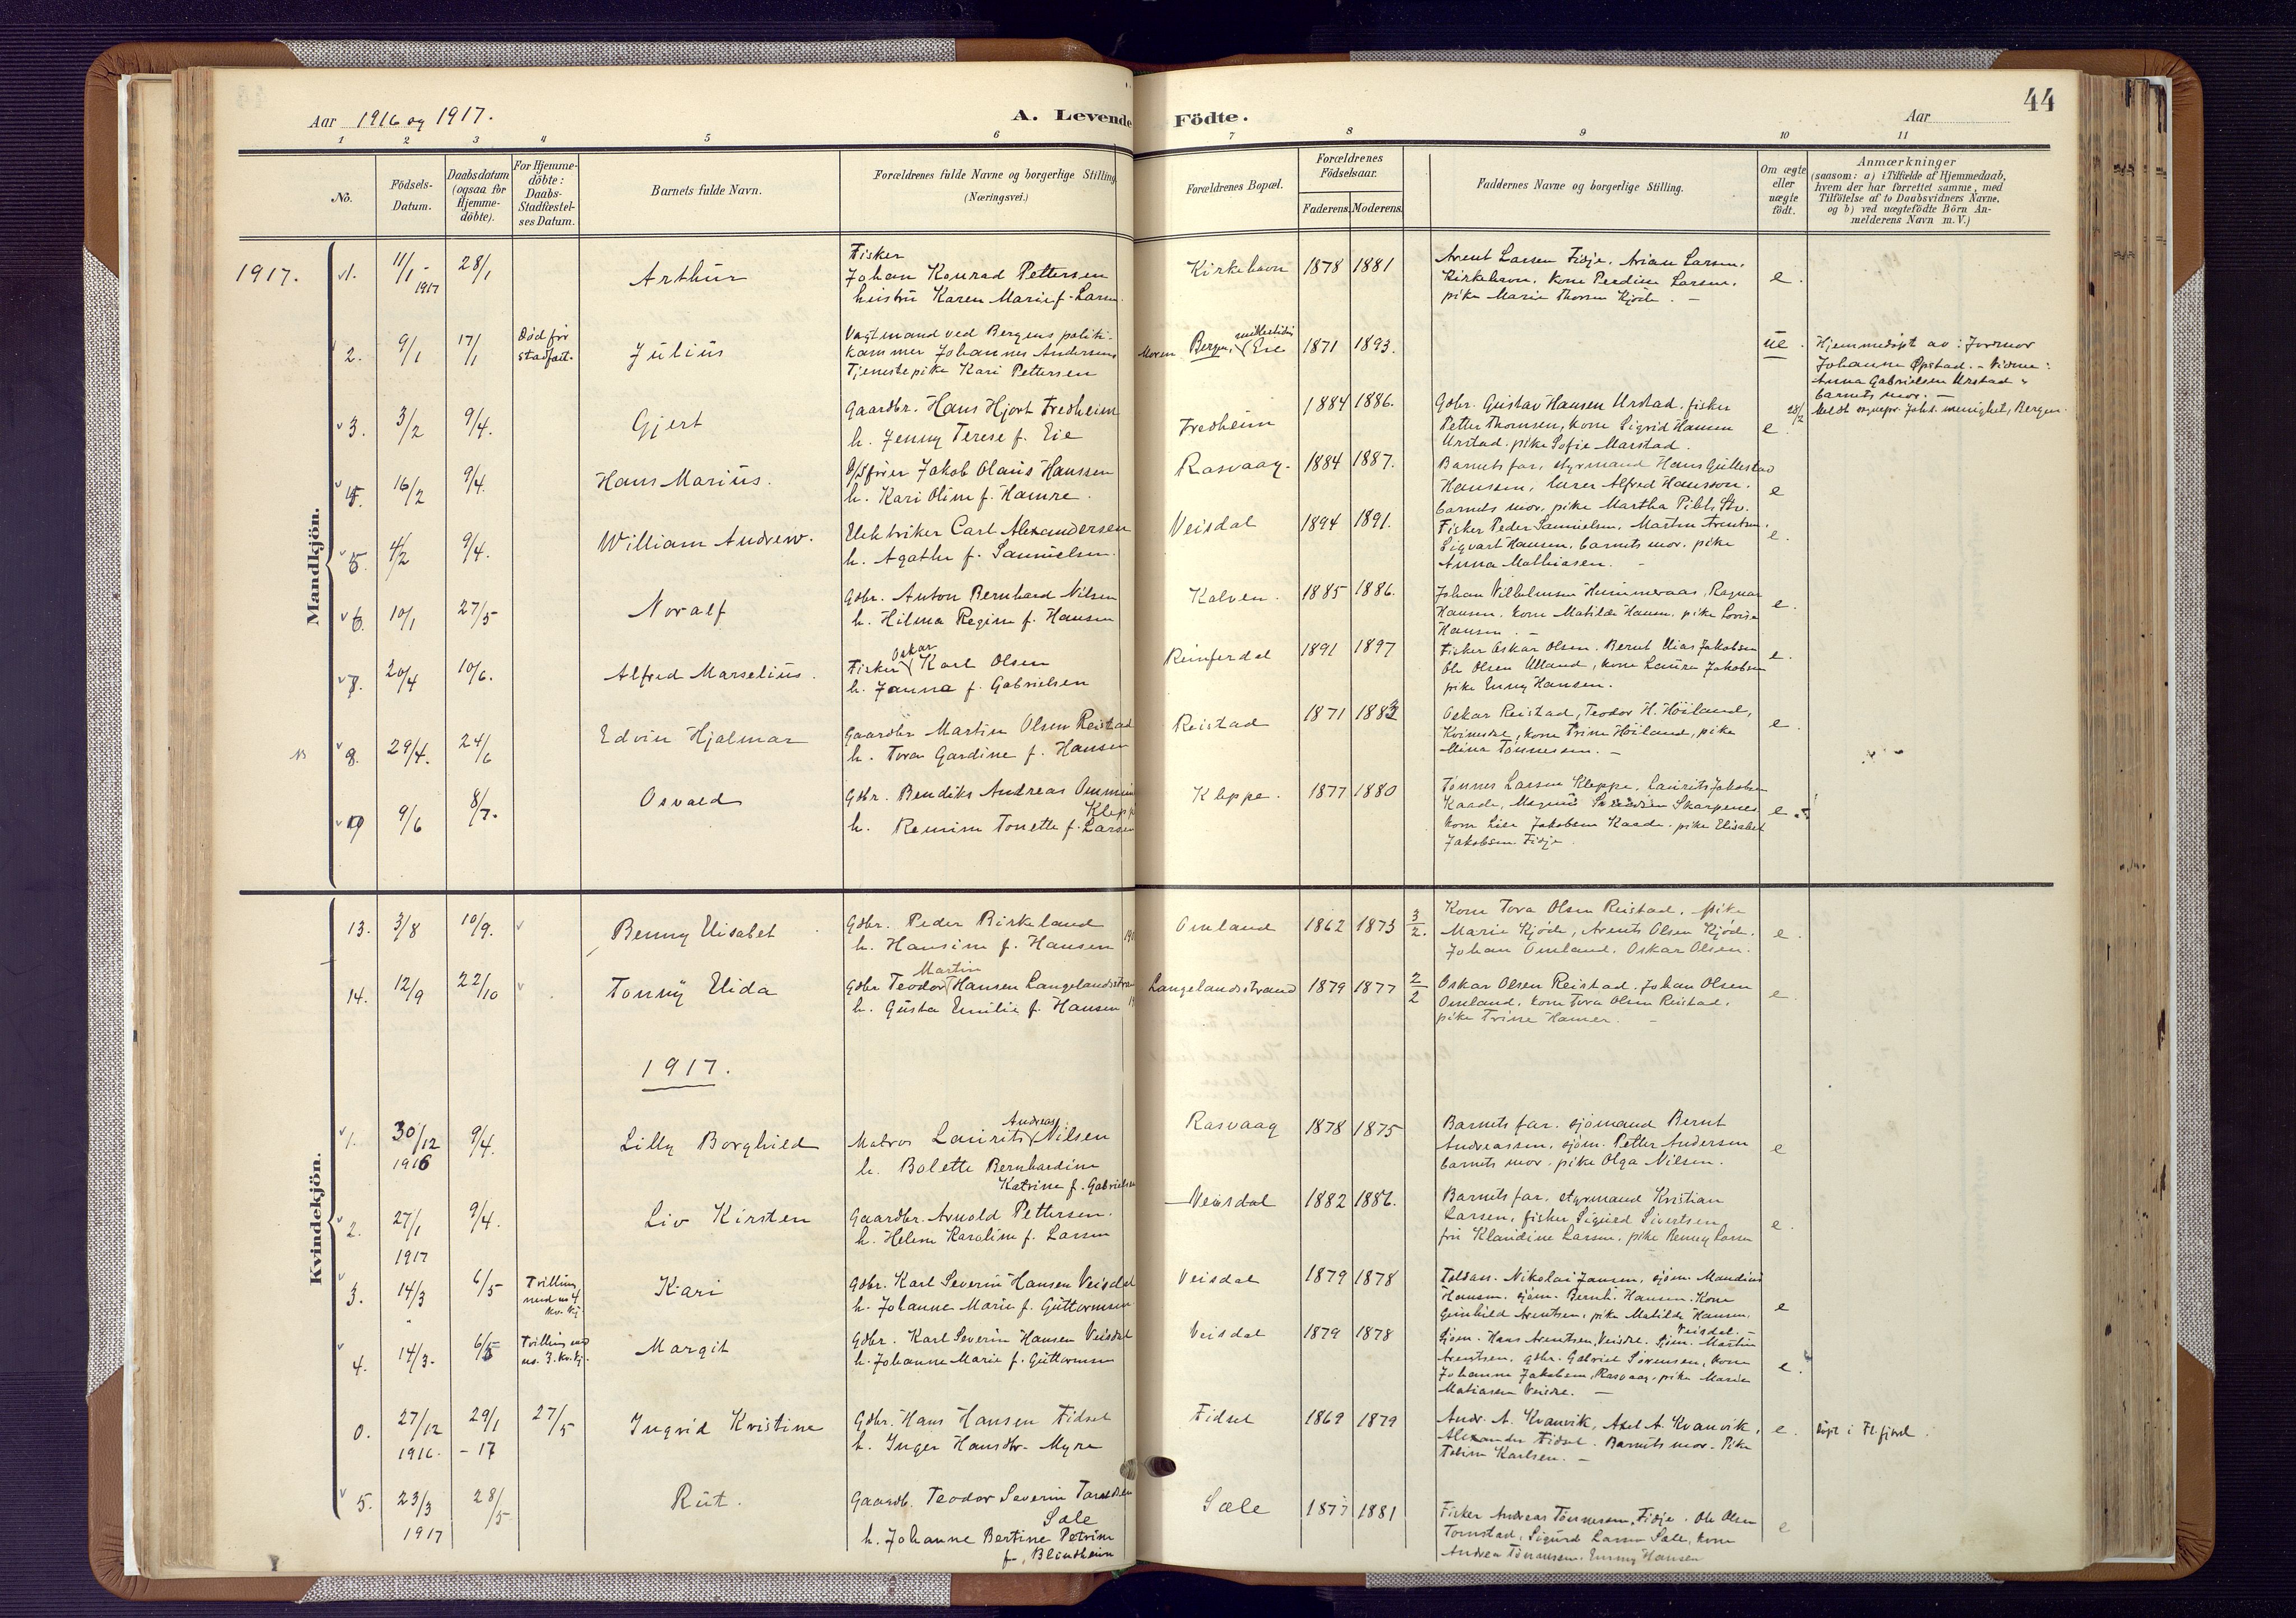 44
Aar 1916 og 1917.
A. Levende Födte.
Aar
1 2 3 4 5 6 7 8 9 10 11
No.
Födsels-
Datum.
Daabsdatum
(ogsaa for
Hjemme-
döbte).
For Hjemme-
döbte:
Daabs-
Stadfæstel-
ses Datum.
Barnets fulde Navn.
Forældrenes fulde Navne og borgerlige Stilling
(Næringsvei.)
Forældrenes Bopæl.
Forældrenes
Födselsaar.
Faderens. Moderens.
Faddernes Navne og borgerlige Stilling.
Om ægte
eller
uægte
födt.
Anmærkninger
(saasom: a) i Tilfælde af Hjemmedaab,
hvem der har forrettet samme, med
Tilföielse af to Daabsvidners Navne,
og b) ved uægtefödte Börn An-
melderens Navn m. V.)
Mandkjön.
1917.
1. 11/1 1917 28/1 Arthur
Fisker
Johan Konrad Pettersen
hustru Karen Marie f. Larsen
Kirkehavn 1878 1881
Arent Larsen Fidje. Arian Larsen,
Kirkehavn. kone Perdine Larsen.
pike Marie Thorsen Kjøde. –
e.
2. 9/1 17/1 Død før
stadfæst.
Julius
Vagtmand ved Bergens politi-
kammer Johannes Andersen
Tjenestepike Kari Pettersen
Moren Bergen, Eie 1871 1893.
ue.
Hjemmedøpt av: Jordmor
Johanne Øpstad. – Vidne:
Anna Gabrielsen Urstad
barnets mor. –
3. 3/2 9/4. Gjert
Gaardbr. Hans Hjort Fredheim
h. Jenny Terese f. Eie
Fredheim 1884 1886.
Gdbr. Gustav Hansen Urstad, fisker
Petter Thomsen, kone Sigrid Hansen
Urstad. pike Sofie Marstad.
e. 28/2
16/2 9/4. Hans Marius.
Jakob Olaus Hanssen
h. Kari Oline f. Hamre.
Rasvaag. 1884 1887.
Barnets far, styrmand Hans Gullestad
Hanssen, lærer Alfred Hansson.
barnets mor, pike Martha
e
5. 4/2 9/4. William Andrew.
Elektriker Carl Alexandersen
h. Agathe f. Samuelsen.
Veisdal 1894 1891.
Fisker Peder Samuelsen, Martin Arentsen,
Sigvart Hansen, barnets mor. pike
Anna Mathiasen. –
e.
6. 10/1 27/5 Noralf
Gdbr. Anton Bernhard Nilsen
h. Hilma Regine f. Hansen
Kalven. 1885 1886.
Johan Vilhelmsen Hummeraas, Ragnar
Hansen. kone Matilde Hansen. pike Lovise
Hansen. –
e.
7. 20/4 10/6. Alfred Marselius.
Oskar
Fisker Karl Olsen
h. Janna f. Gabrielsen
Reinferdal 1891 1897
Fisker Oskar Olsen. Bernt Elias Jakobsen
Ole Olsen Ulland, kone Laura Jakobsen
pike Enny Hansen.
e.
8. 29/4. 24/6 Edvin Hjalmar
Gaardbr Martin Olsen Reistad
h. Tora Gardine f. Hansen
Reistad 1871
Oskar Reistad, Teodor H. Höiland,
Kvinesdr., kone Trine Höiland, pike
Mina Tönnessen. –
e.
9 9/6 8/7. Osvald
Gdbr. Bendiks Andreas
Kleppe
h. Remine Tonette f. Larsen
Kleppe. 1877 1880
Tønnes Larsen Kleppe, Laurits Jakobsen
Kaade, Magnus Skarpenes
kone Lise Jakobsen Kaade. pike Elisabet
Jakobsen Fidje.
e.
Kvindekjön.
13. 3/8 10/9. Benny Elisabet
Gdbr. Peder Birkeland
h. Hansine f. Hansen
Omland 1862 1873 3/2.
Kone Tora Olsen Reistad. pike
Marie Kjøde, Arents Olsen Kjøde.
Johan Omland. Oskar Olsen.
e.
14. 12/9 22/10 Tonny Elida
Martin
Gdbr Teodor Hansen Langelandsstrand
h. Gusta Emilie f. Hansen
Langelandsstrand 1879 1877 2/2
Oskar Olsen Reistad. Johan Olsen
Omland. kone Tora Olsen Reistad.
pike Trine Hamer. –
e.
1917.
1. 30/12 1916 9/4. Lilly Borghild
Andreas
Matros Laurits Nilsen
h. Bolette Bernhardine
Katrine f. Gabrielsen
Rasvaag 1878 1875
Barnets far. sjømand Bernt
Andreassen, sjøm. Petter Andersen
barnets mor. pike Olga Nilsen.
e
2. 27/1 1917 9/4. Liv Kirsten
Gaardbr. Arnold Pettersen.
h. Helene Karoline f. Larsen
Veisdal 1882 1886.
Barnets far, styrmand Kristian
Larsen, fisker Sigurd Sivertsen
fru Klaudine Larsen, pike Benny Larsen
e.
3. 14/3 6/5 Tvilling
med no 4
kv. kj
Kari
Gdbr. Karl Severin Hansen Veisdal
h. Johanne Marie f. Guttormsen
Veisdal 1879 1878
Toldass. Nikolai Jansen, sjøm. Mandius
Hansen. sjøm. Bernh. Hansen. Kone
Gunhild Arentsen, pike Matilde Hansen,
Veisdal. –
e
4. 14/3. 6/5 Tvilling med
no. 3. kv. kj.
Margit
Gdbr. Karl Severin Hansen Veisdal
h. Johanne Marie f. Guttormsen
Veisdal 1879 1878
Sjøm. Hans Arentsen, Veisdre. Sjøm. Martin
Arentsen, gdbr. Gabriel Sørensen, kone
Johanne Jakobsen, Rasvaag, pike Marie
Matiasen Veisdre. –
e.
0. 27/12 1916. 29/1 – 17 27/5 Ingrid Kristine
Gdbr. Hans Hansen Fidsel
h. Inger Hansdtr. Myre
Fidsel 1869 1879
Andr. A. Kvanvik, Axel A. Kvanvik,
Alexander Fidsel. Barnets mor. Pike
Tobine Karlsen. –
e. døpt i Fl.fjord.
5. 23/3 1917 28/5 Rut.
Gaardb. Teodor Severin
Sæle
h. Johanne Bertine Petrine
f. Blindheim
Sæle 1877 1881
Fisker Andreas Tönnesen, Fidje. Ole Olsen
Tomstad, Sigurd Larsen Sæle, kone
Andrea Tönnesen. Enny Hansen
e